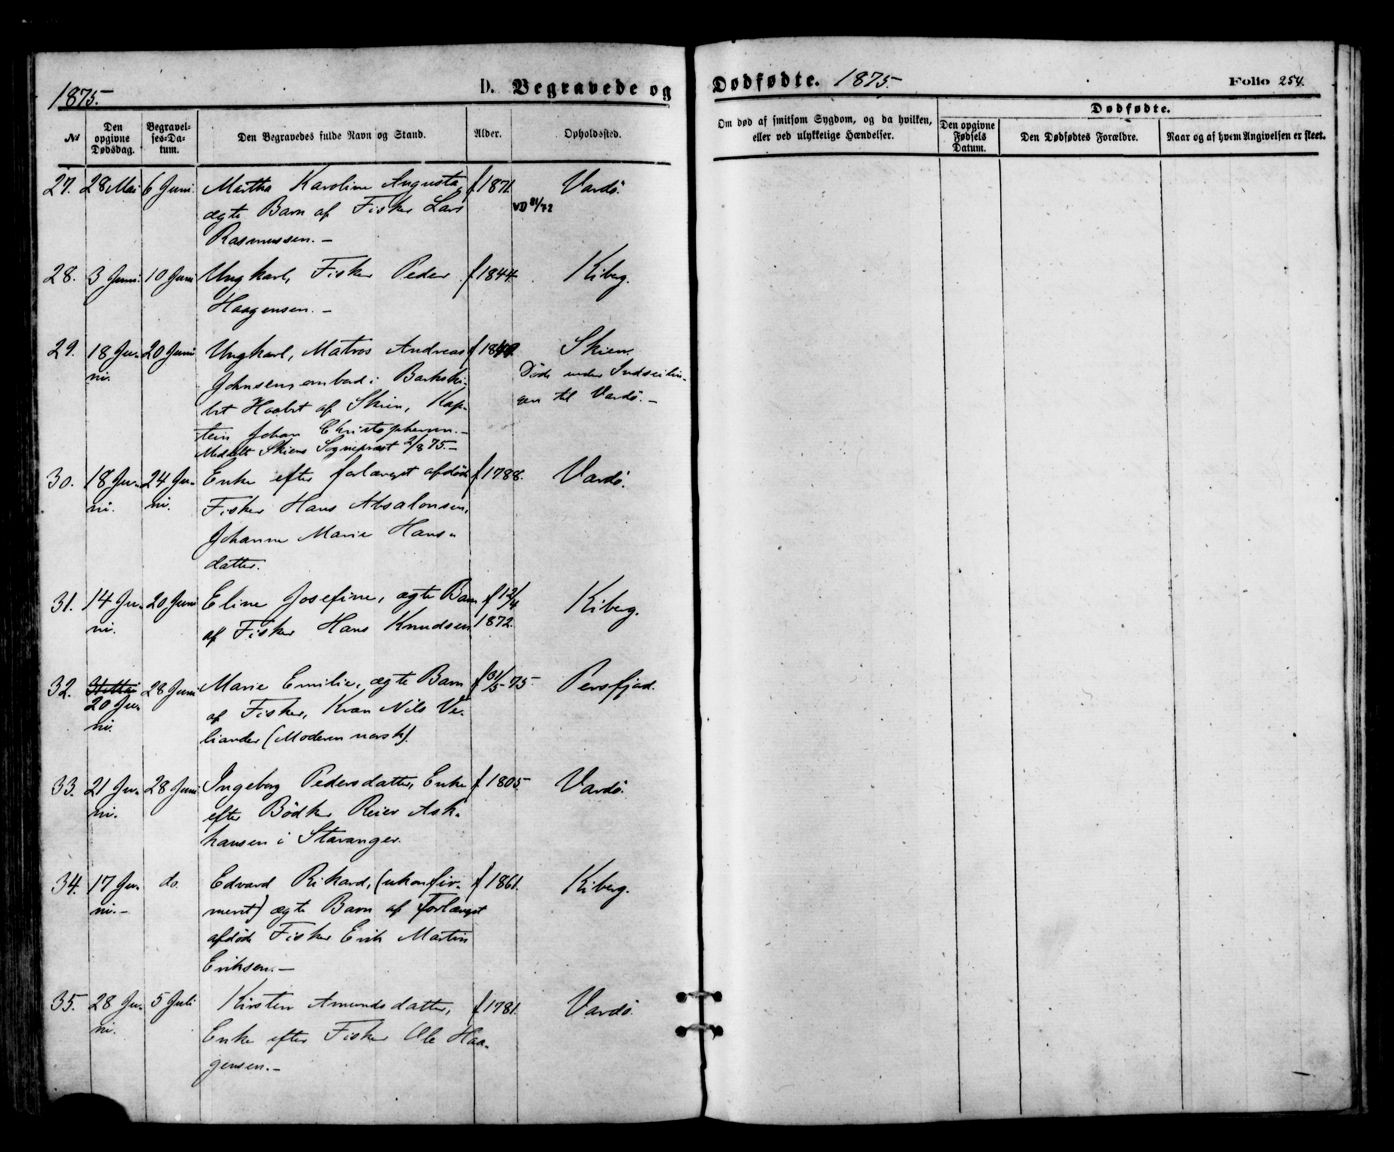 1875.
D. Begravede og
Dødfødte. 1875.
Folio 254.
No
Den opgivne Dødsdag.
Begravelses-Datum.
Den Begravedes fulde Navn og Stand.
Alder.
Opholdssted.
Om død af smitsom Sygdom, og da hvilken,
eller ved ulykkelige Hændelser.
Dødfødte.
Den opgivne Fødsels Datum.
Den Dødfødtes Forældre.
Naar og af hvem Angivelsen er skeet.
27. 28 Mai 6 Juni. Martha Karoline Augusta, f 1871. Vardö.
ægte Barn af Fisker Lars
Rasmussen. –
28. 3 Juni. 10 Juni Ungkarl, Fisker Peder f 1844. Kiberg.
Haagensen. –
29. 18 Ju- 20 Juni Ungkarl, Matros Andreas Skien.
ni. Johnsen ombord i Barkski- Döde under Indseilin-
bet Haabet af Skien, Kap- gen til Vardö. –
tein Johan Christophersen. –
Meddelt Skiens Sognepræst 2/8 75. –
30. 18 Ju- 24 Ju- Enke efter forlængst afdöde f 1788. Vardö.
ni. ni. Fisker Hans Absalonsen,
Johanne Marie Hans-
datter.
31. 14 Ju- 20 Juni Eline Josefine, ægte Barn f 12/4 Kiberg.
ni. af Fisker Hans Knudsen 1872.
32. 31 Mai 28 Juni Marie Emilie, ægte Barn f 31/5 - 75 - Persfjord.
20 Ju- af Fisker, Kvæn Nils
ni. liander (Moderen norsk).
33. 21 Ju- 28 Juni Ingeborg Pedersdatter, Enke f 1805. Vardö.
ni. efter Bödker Reier Ask-
hansen i Stavanger.
34. 17 Ju- do. Edvard Rikard, (ukonfir- f 1861. Kiberg.
ni. – meret) ægte Barn af forlængst
afdöde Fisker Erik Martin
Eriksen. –
35. 28 Ju- 5 Juli Kirsten Amundsdatter, f 1781. Vardö.
ni. Enke efter Fisker Ole Haa-
gensen. –